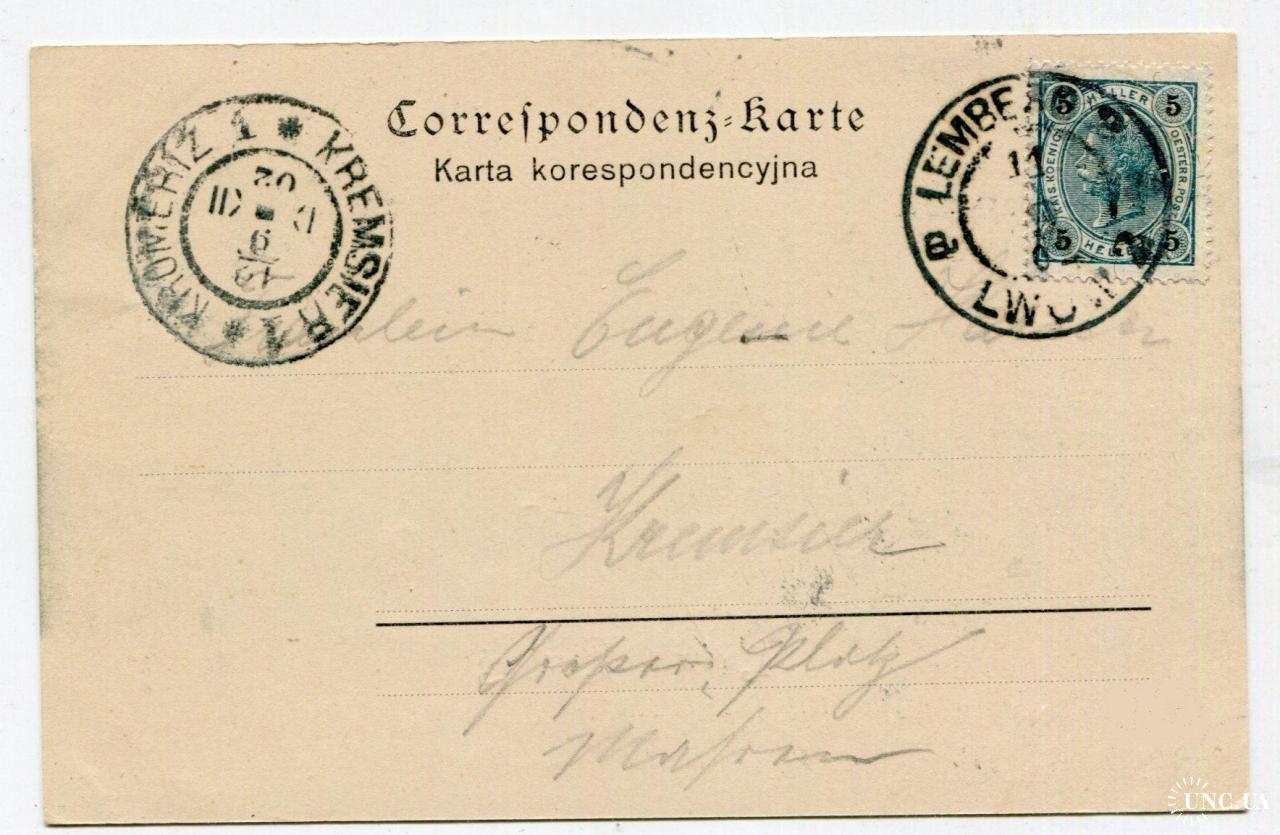 Correspondenz-Karte
Karta korespondencyjna
KROMĚŘÍŽ 1 * KREMSIER 1 *
02
LEMBERG
LWÓW
5 HELLER 5
KAIS. KOENIGL. OESTERR. POST
5 HELLER 5
Fräulein Eugenie
Kremsier
Großer Platz
Mähren
UNC.UA